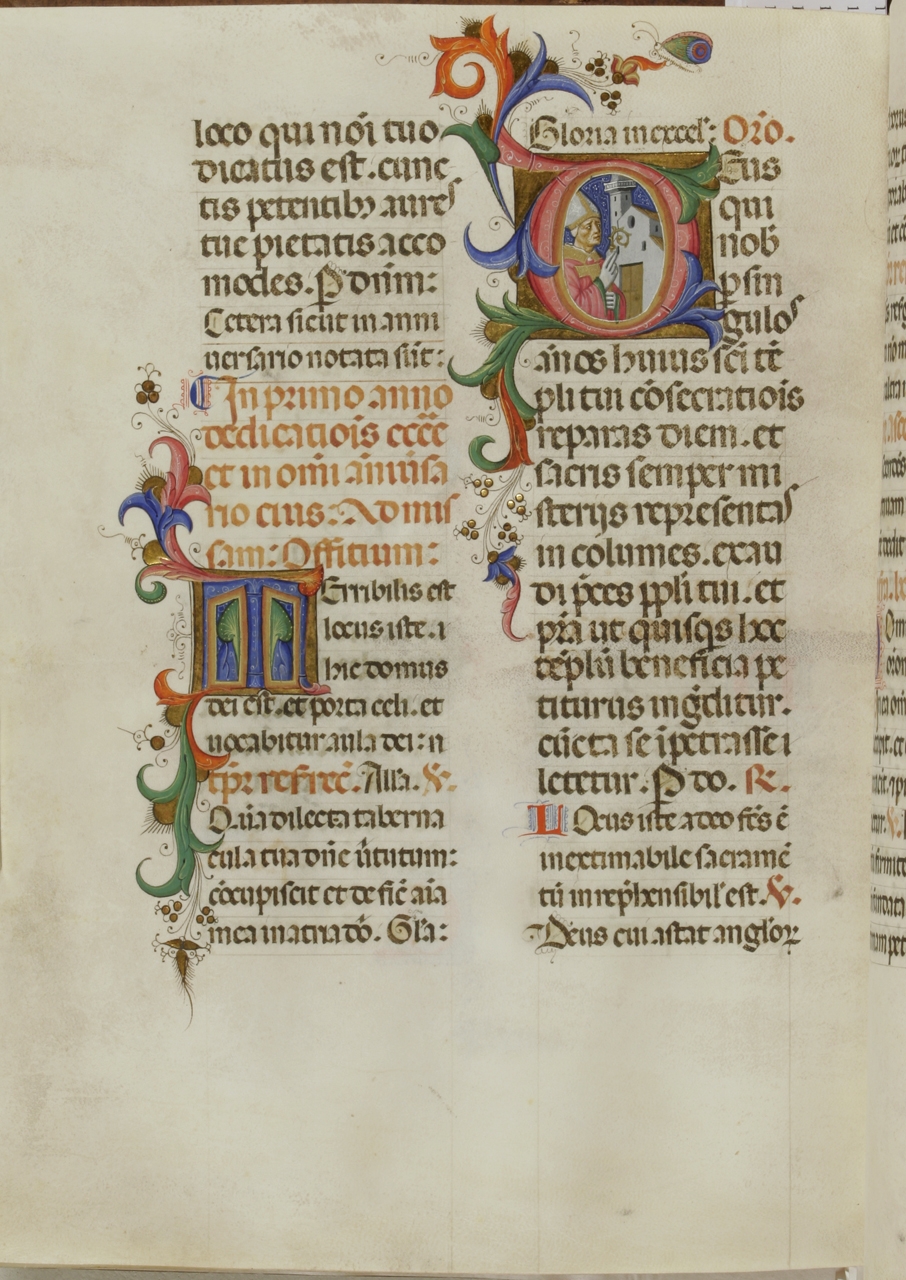 loco qui noi tuo
dicatus est. cunc
tis petentibꝫ aures
tue pietatis acco
modes. P dnm:
Cetera sicut in anni
uersario notata sūt:
In primo anno
dedicatiois eccē
et in omī anniūsa
rio eius: Ad mis
sam: Offitium:
TErribilis est
locus iste. i
hic domus
dei est. et porta celi. et
uocabitur aula dei: ī
tpr resurrec̄. Alla. V.
Quā dilecta taberna
cula tua dn̄e ūtutum:
cōcupiscit et deficē aīa
mea in atria dō. Gl̄a:
Gloria in excel: Or̄o.
DEus
qui
nob̄
p sin
gulos
ānos huius sc̄i tē
pli tui cōsecratiois
reparas diem. et
sacris semper mi
sterijs representas
in columes. exau
di p̄ces ppl̄i tui. et
pr̄a ut quisqs hoc
tēplū beneficia pe
titurus ingr̄ditur.
cūcta se īpetrasse l
letetur. P do. R.
LOcus iste a deo fc̄s ē
inextimabile sacramē
tū inrep̄hensibil' est. V.
Deus cui astat anglorꝝ